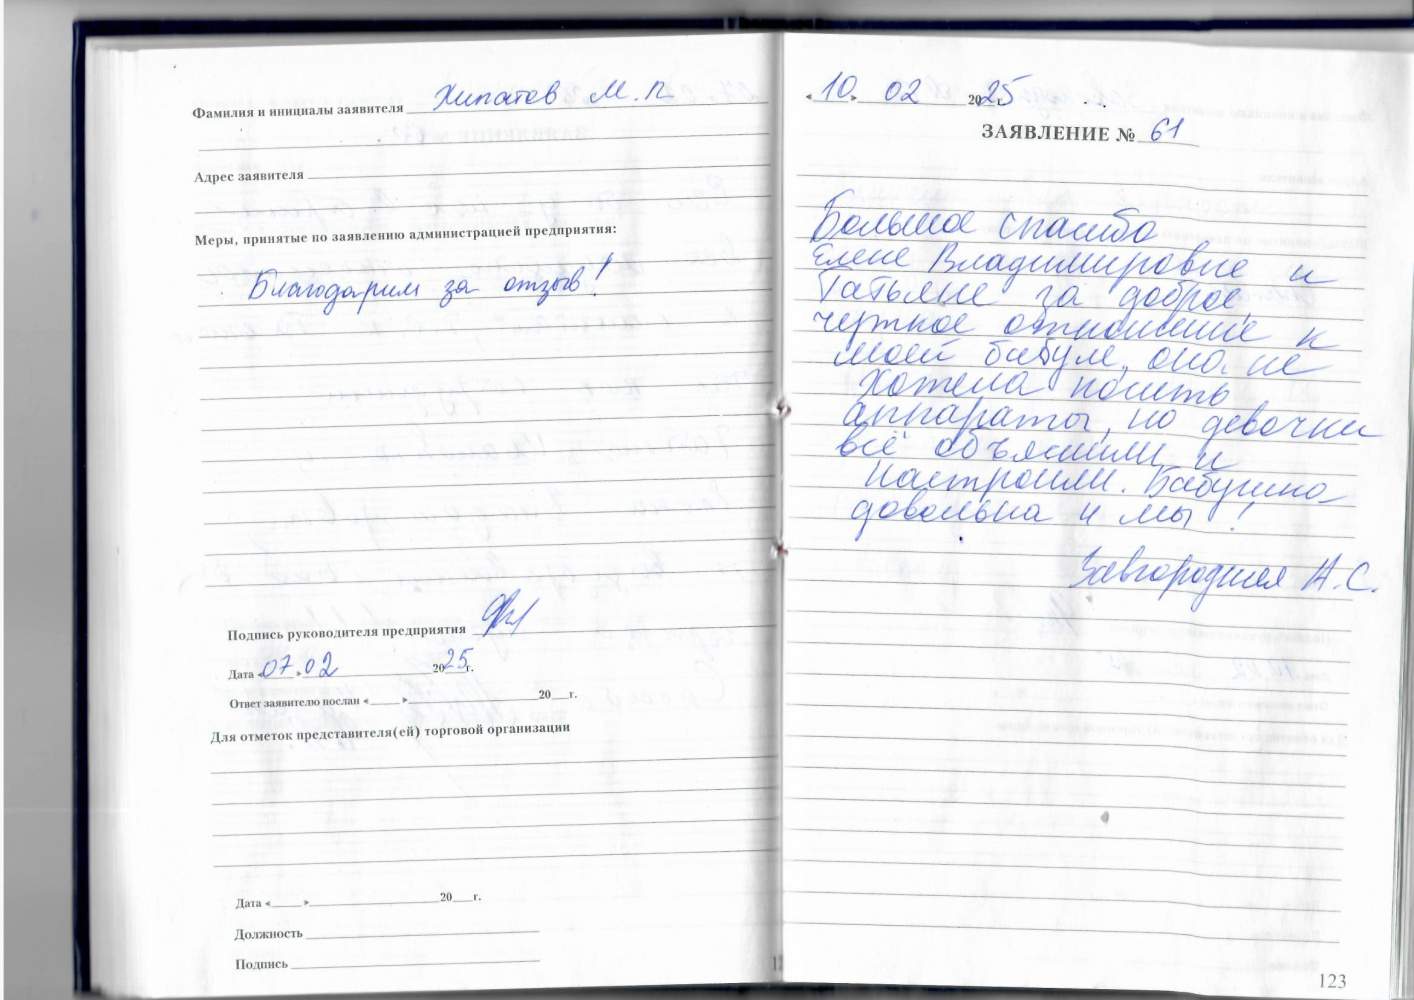 Фамилия и инициалы заявителя Хипатов М.П.
Адрес заявителя
Меры, принятые по заявлению администрацией предприятия:
Благодарим за отзыв!
Подпись руководителя предприятия
Дата «07» 02 2025 г.
Ответ заявителю послан «___»___ 20__г.
Для отметок представителя(ей) торговой организации
Дата «___»___ 20__г.
Должность
Подпись
«10» 02 2025 г.
ЗАЯВЛЕНИЕ № 61
Большое спасибо
Елене Владимировне и
Татьяне за доброе,
чуткое отношение к
моей бабуле, она не
хотела носить
аппараты, но девочки
всё объяснили и
настроили. Бабушка
довольна и мы!
Завгородняя А.С.
123